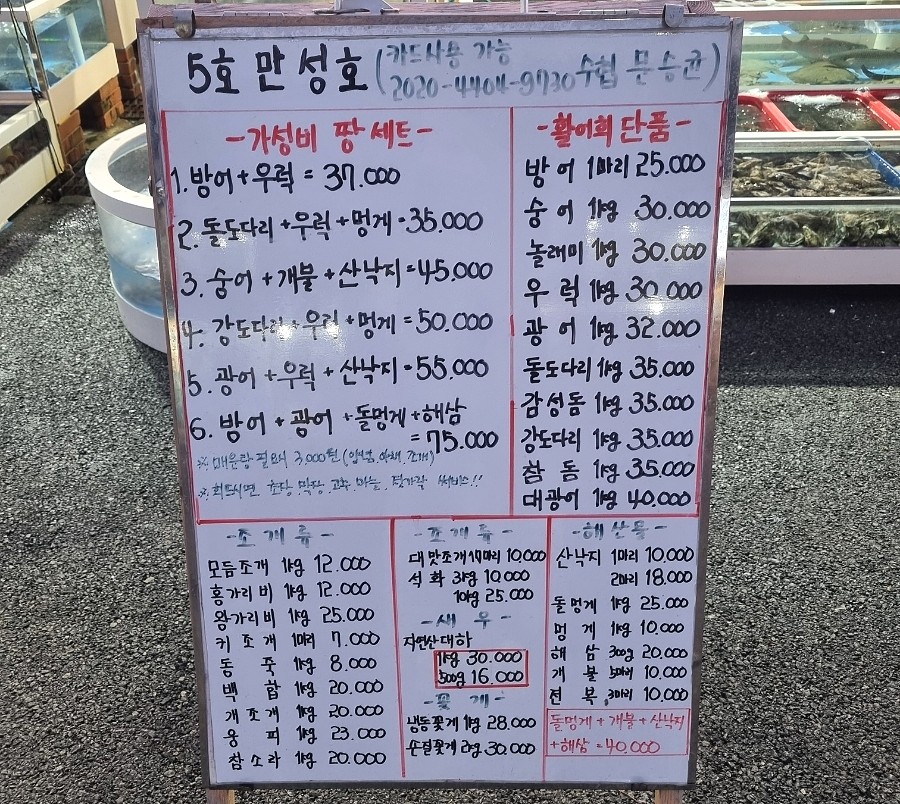 5호 만성호 (카드사용 가능
2020-4404-9730 수협 문승균)
-가성비 짱 세트-
1. 방어+우럭 = 37.000
2. 돌도다리+우럭+멍게 = 35.000
3. 숭어+개불+산낙지=45.000
4. 강도다리+우럭+멍게 = 50.000
5. 광어+우럭+산낙지=55.000
6. 방어+광어+돌멍게+해삼
=75.000
※ 매운탕 필요시 3,000원 (양념, 야채, 조개)
※ 회드시면 초장, 막장, 고추, 마늘, 젓가락 써비스!!
-활어회 단품-
방어 1마리 25.000
숭어 1kg 30.000
놀래미 1kg 30.000
우럭 1kg 30.000
광어 1kg 32.000
돌도다리 1kg 35.000
감성돔 1kg 35.000
강도다리 1kg 35.000
참돔 1kg 35.000
대광어 1kg 40.000
-조개류-
모듬조개 1kg 12.000
홍가리비 1kg 12.000
왕가리비 1kg 25.000
키조개 1마리 7.000
동죽 1kg 8.000
백합 1kg 20.000
개조개 1kg 20.000
웅피 1kg 23.000
참소라 1kg 20.000
-조개류-
대맛조개 10,000
석화 3kg 10.000
10kg 25.000
-새우-
자연산대하
1kg 30.000
500g 16.000
-꽃게-
냉동꽃게 1kg 28.000
손질꽃게 2kg 30.000
-해산물-
산낙지 1마리 10.000
2마리 18.000
돌멍게 1kg 25.000
멍게 1kg 10.000
해삼 300g 20.000
개불 5마리 10.000
전복 3마리 10.000
돌멍게+개불+산낙지
+해삼 =40.000